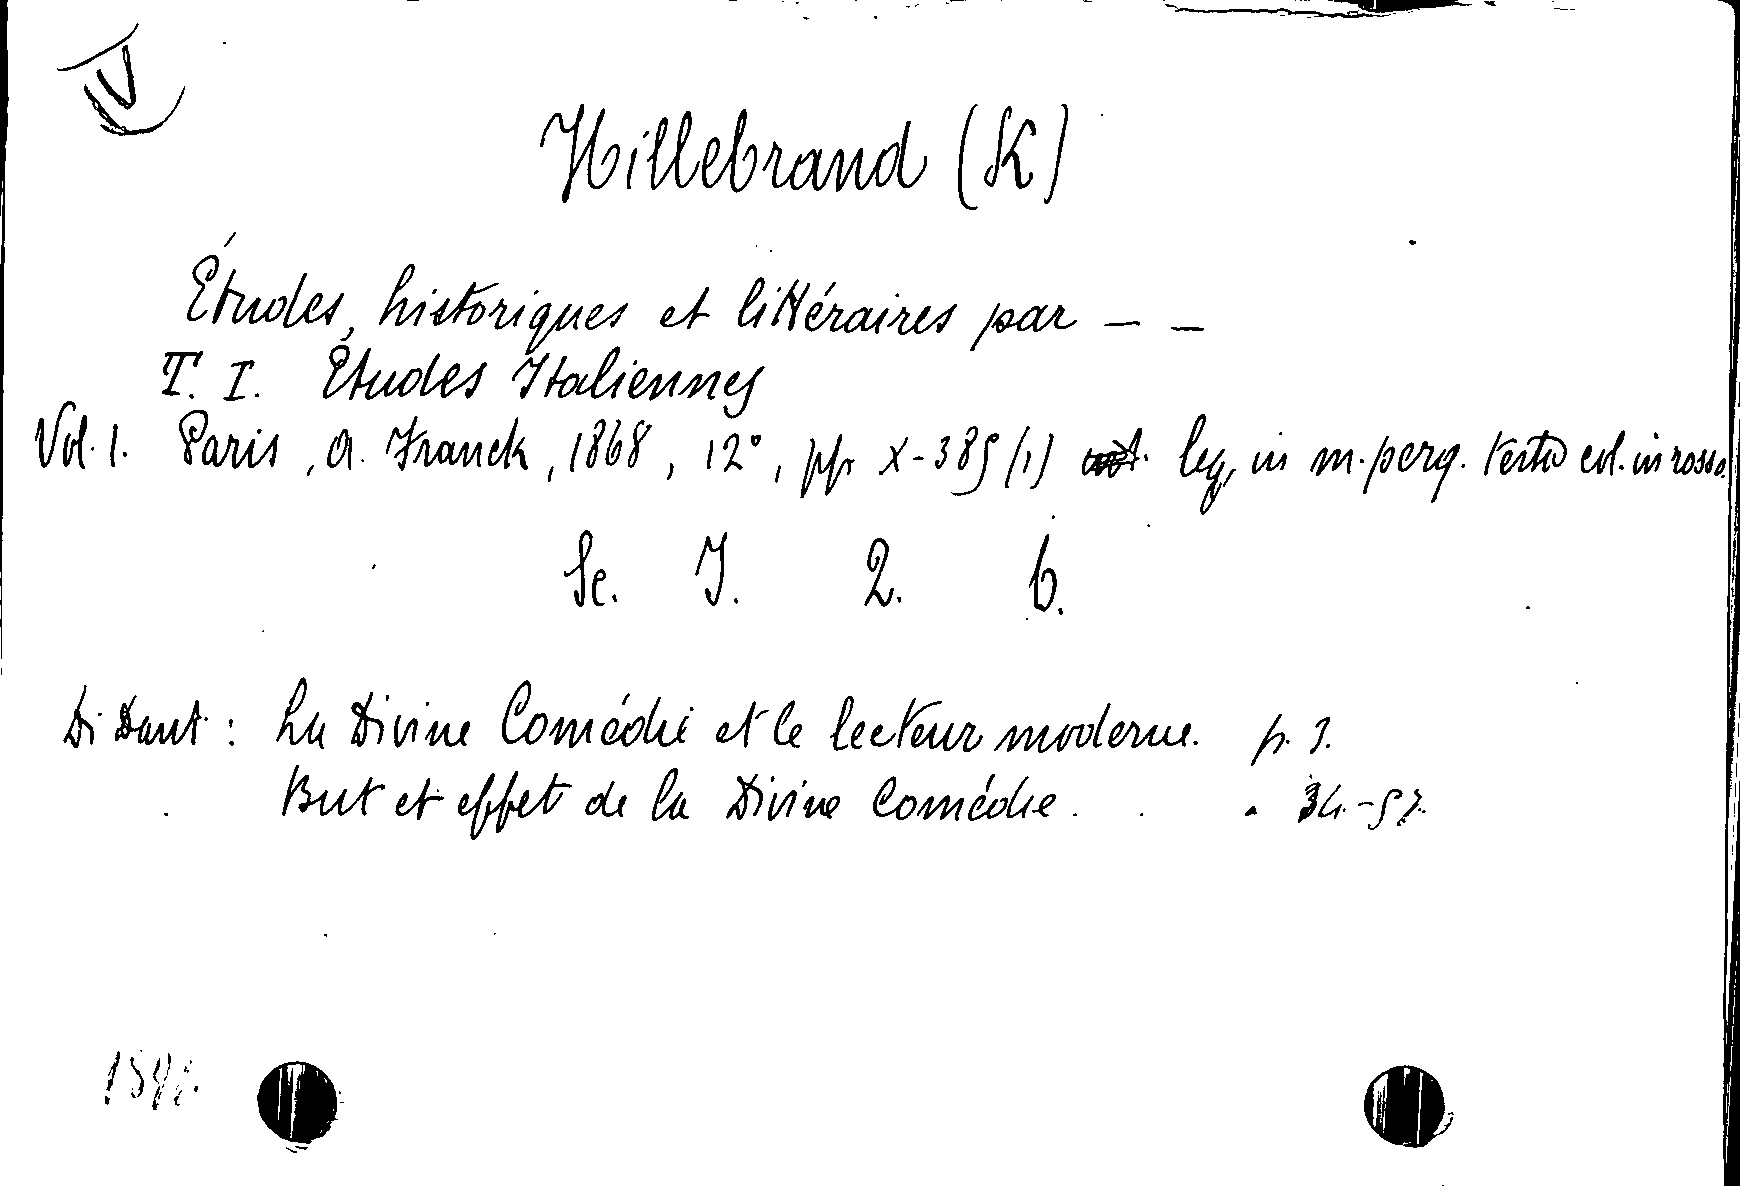 IV
Hillebrand (K)
Études historiques et littéraires par – –
T. I. Études Italiennes
Vol. 1. Paris, A. Franck, 1868, 12°, pp. X-389 (1) leg. in m. perg. testo col. in rosso
Sc. I. 2. 6.
Di Dant: La Divine Comédie et le lecteur moderne. p. 3.
But et effet de la Divine Comédie . . . 34-57.